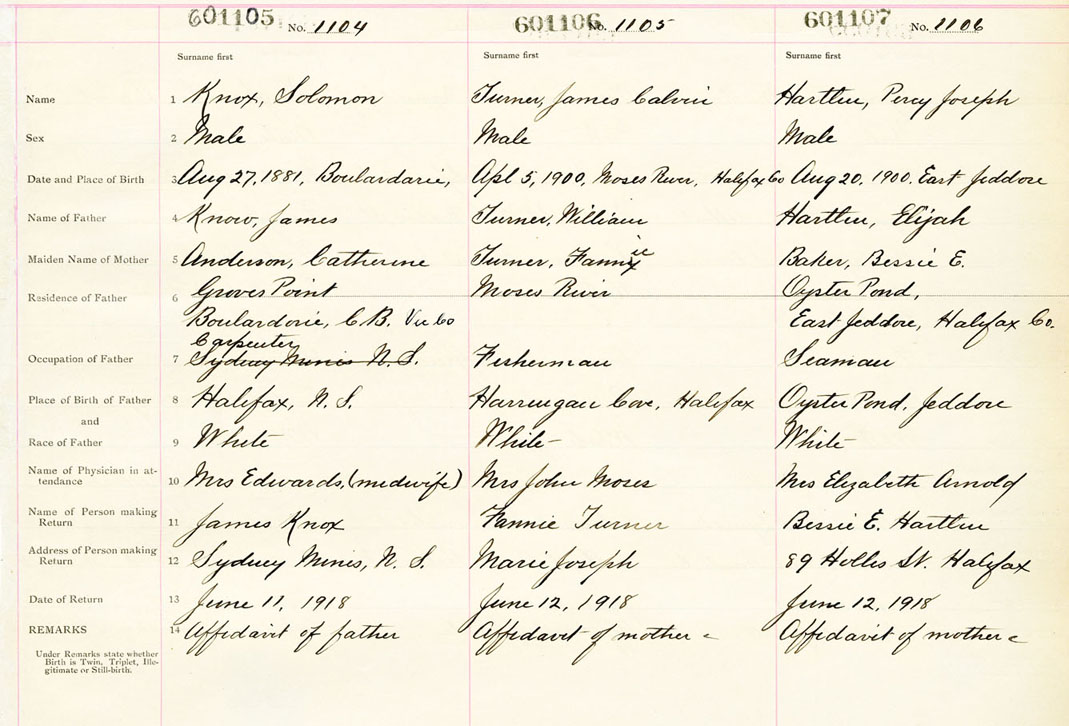 601105 No. 1104 601106 No. 1105 601107 No. 1106
Surname first Surname first Surname first
Name 1 Knox, Solomon Turner, James Calvin Hartlin, Percy Joseph
Sex 2 Male Male Male
Date and Place of Birth 3 Aug 27, 1881, Boulardarie, Apl 5, 1900, Moses River, Halifax Co Aug 20, 1900, East Jeddore
Name of Father 4 Know, James Turner, William Hartlin, Elijah
Maiden Name of Mother 5 Anderson, Catherine Turner, Fannie Baker, Bessie E.
Residence of Father 6 Groves Point Moses River Oyster Pond,
Boulardarie, C.B. Vic Co East Jeddore, Halifax Co.
Carpenter
Occupation of Father 7 Sydney Mines N.S. Fisherman Seaman
Place of Birth of Father 8 Halifax, N.S. Harrengan Cove, Halifax Oyster Pond, Jeddore
and
Race of Father 9 White White White
Name of Physician in at-
tendance 10 Mrs Edwards, (midwife) Mrs John Moses Mrs Elizabeth Arnold
Name of Person making
Return 11 James Knox Fannie Turner Bessie E. Hartlin
Address of Person making
Return 12 Sydney Mines, N.S. Marie Joseph 89 Hollis St. Halifax
Date of Return 13 June 11, 1918 June 12, 1918 June 12, 1918
REMARKS 14 Affidavit of father Affidavit of mother Affidavit of mother
Under Remarks state whether
Birth is Twin, Triplet, Ille-
gitimate or Still-birth.